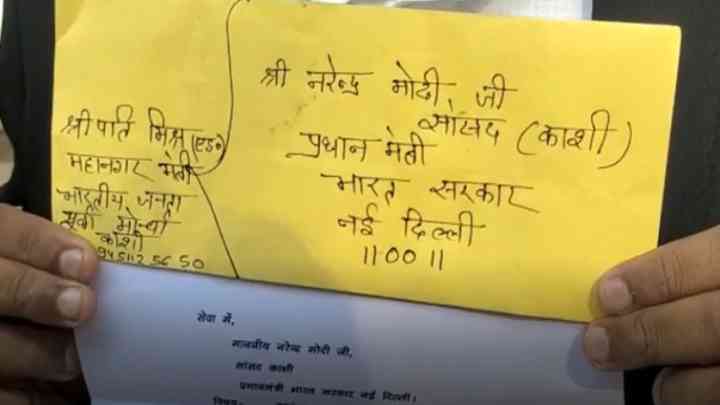 श्री नरेन्द्र मोदी जी
सांसद (काशी)
प्रधान मंत्री
भारत सरकार
नई दिल्ली
110011
श्रीपति मिश्र (एड०)
महानगर मंत्री
भारतीय जनता
युवा मोर्चा
काशी
सेवा में,
माननीय नरेन्द्र मोदी जी,
सांसद काशी
प्रधानमंत्री भारत सरकार नई दिल्ली।
विषय-